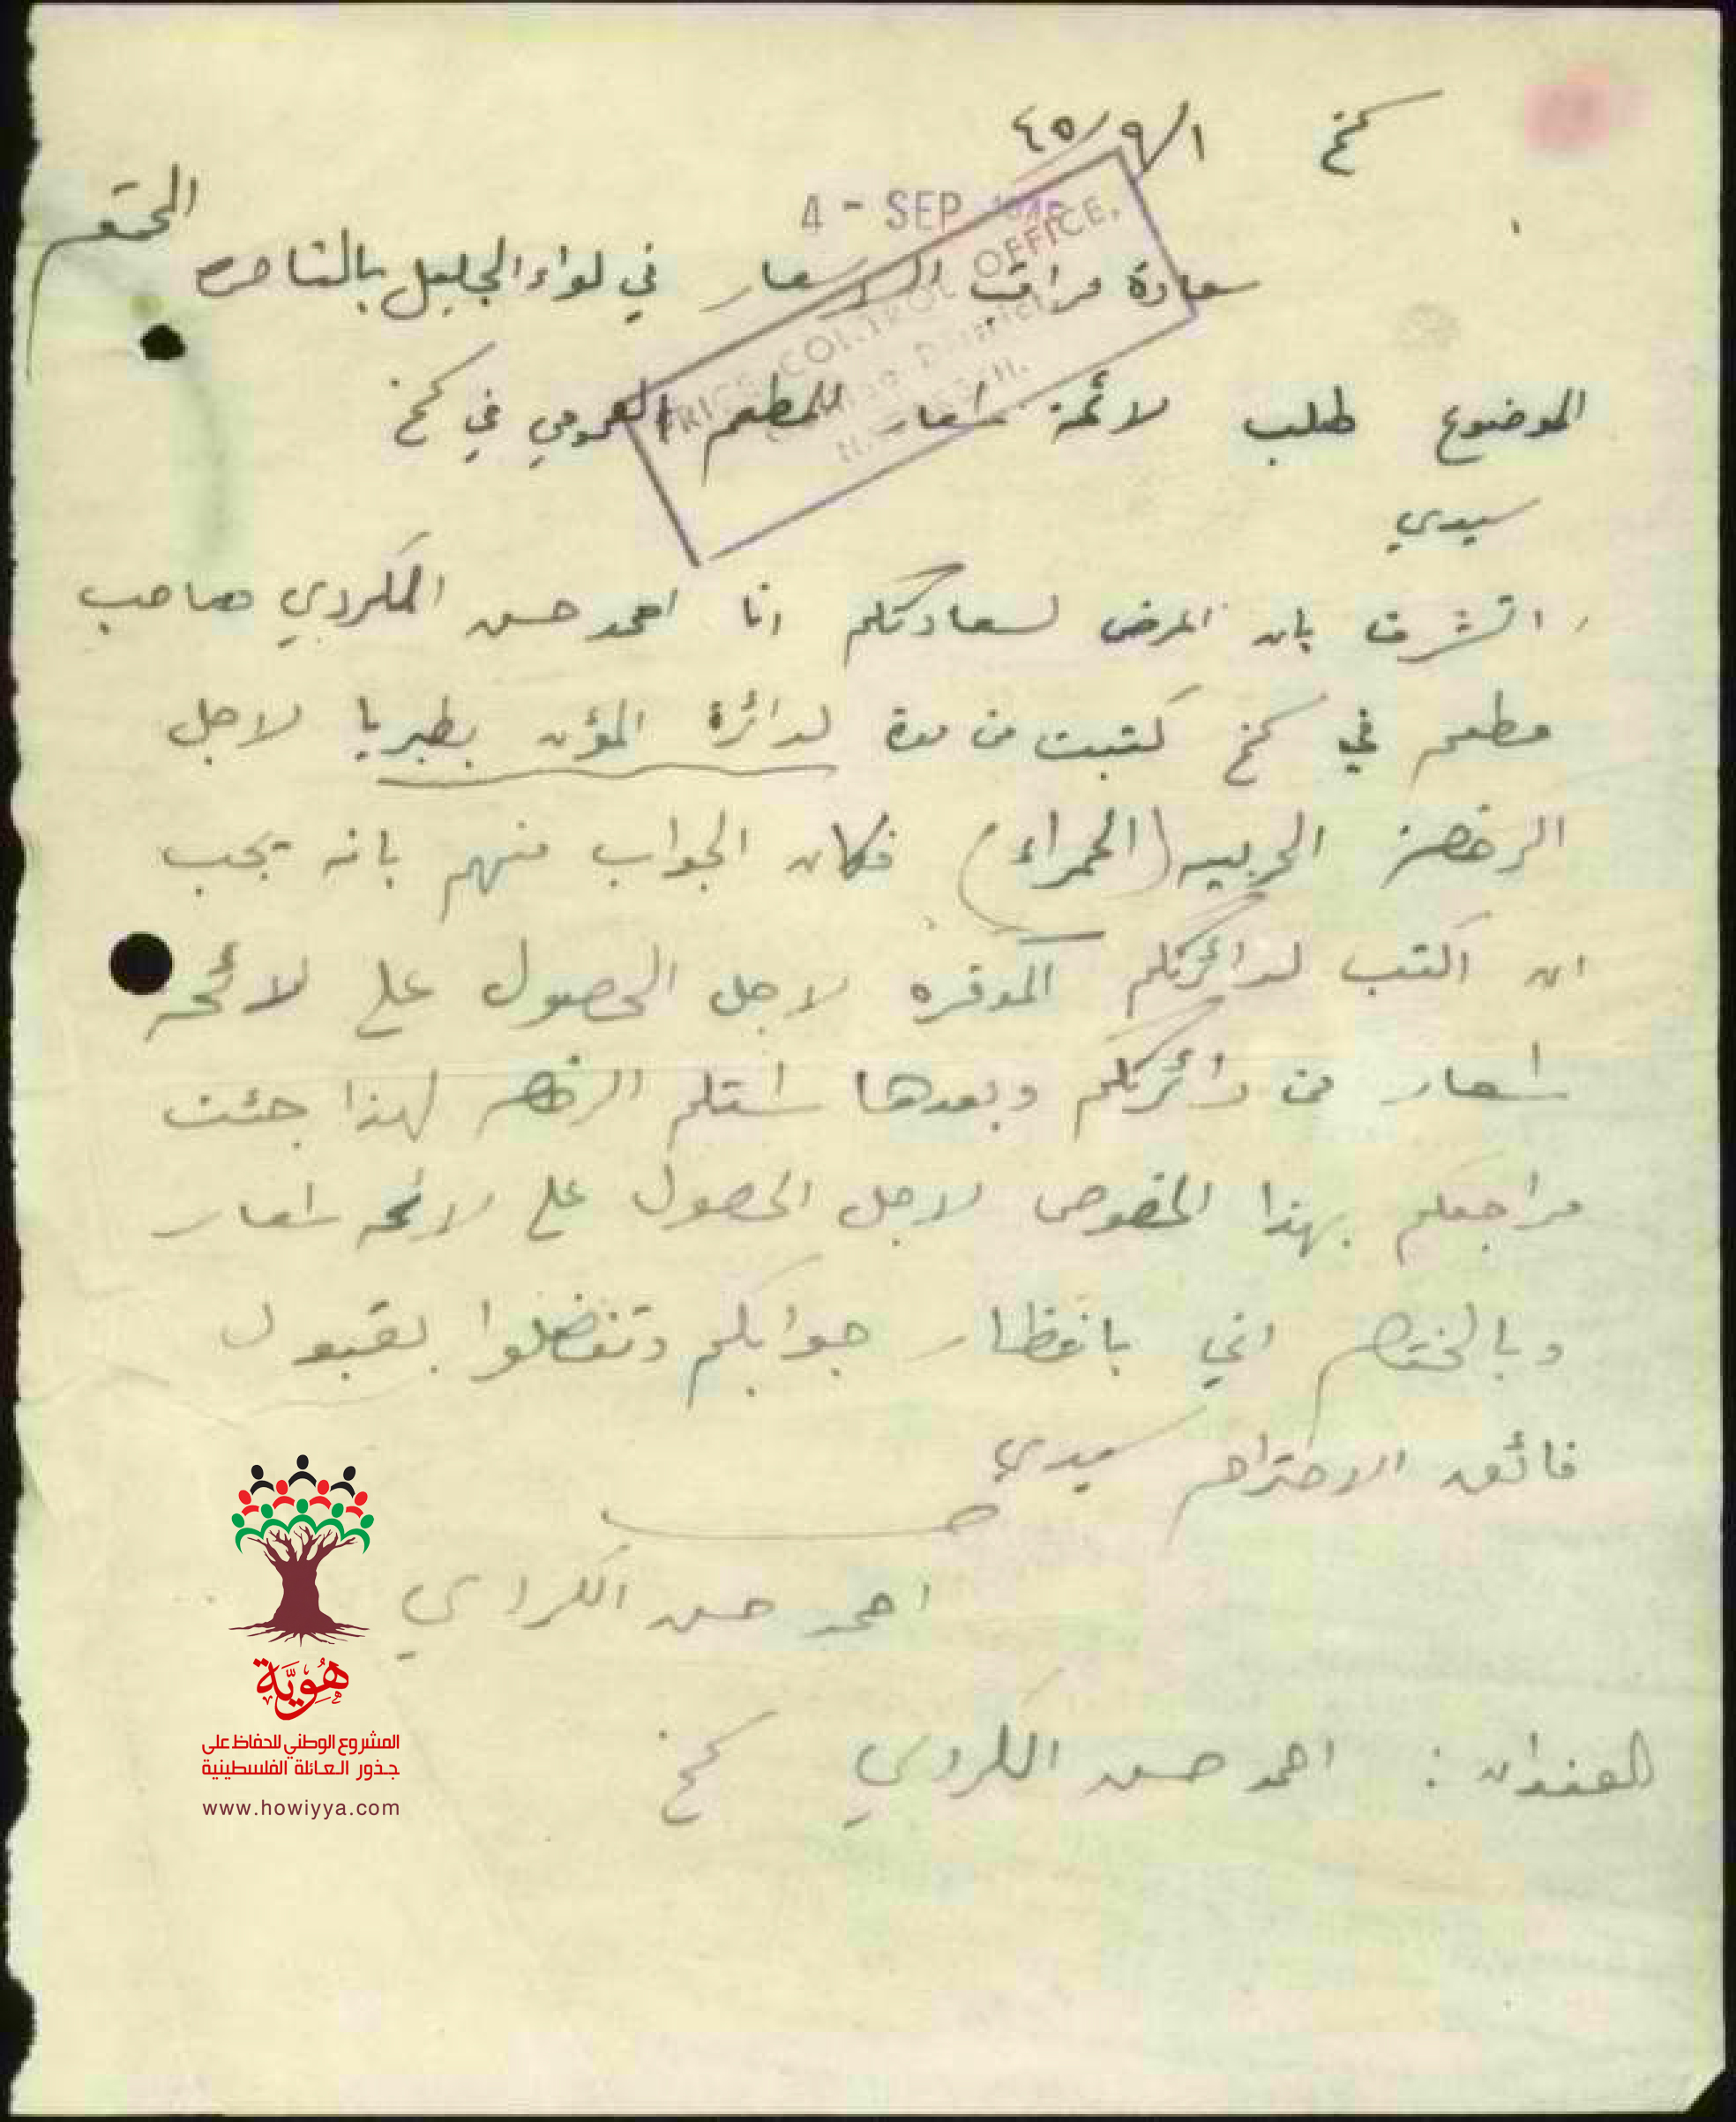 سمخ ٤٥/٩/١
4 - SEP 1945
سعادة مراقب الاسعار في لواء الجليل بالناصره المحترم
PRICE CONTROL OFFICE,
الموضوع طلب لائحة اسعار للمطعم العمومي في سمخ
سيدي
اتشرف بان اعرض لسعادتكم انا احمد حسن الكردي صاحب
مطعم في سمخ كتبت من مدة لدائرة المؤن بطبريا لاجل
الرخصه (الحمراء) فكان الجواب منهم بانه يجب
ان اكتب لدائرتكم الموقره لاجل الحصول على لائحه
اسعار من دائرتكم وبعدها استلم الرخصه لهذا جئت
مراجعكم بهذا الخصوص لاجل الحصول على لائحه اسعار
وبالختام اني بانتظار جوابكم وتفضلوا بقبول
فائق الاحترام سيدي
احمد حسن الكردي
العنوان : احمد حسن الكردي سمخ
هُويَّة
المشروع الوطني للحفاظ على
جذور العائلة الفلسطينية
www.howiyya.com